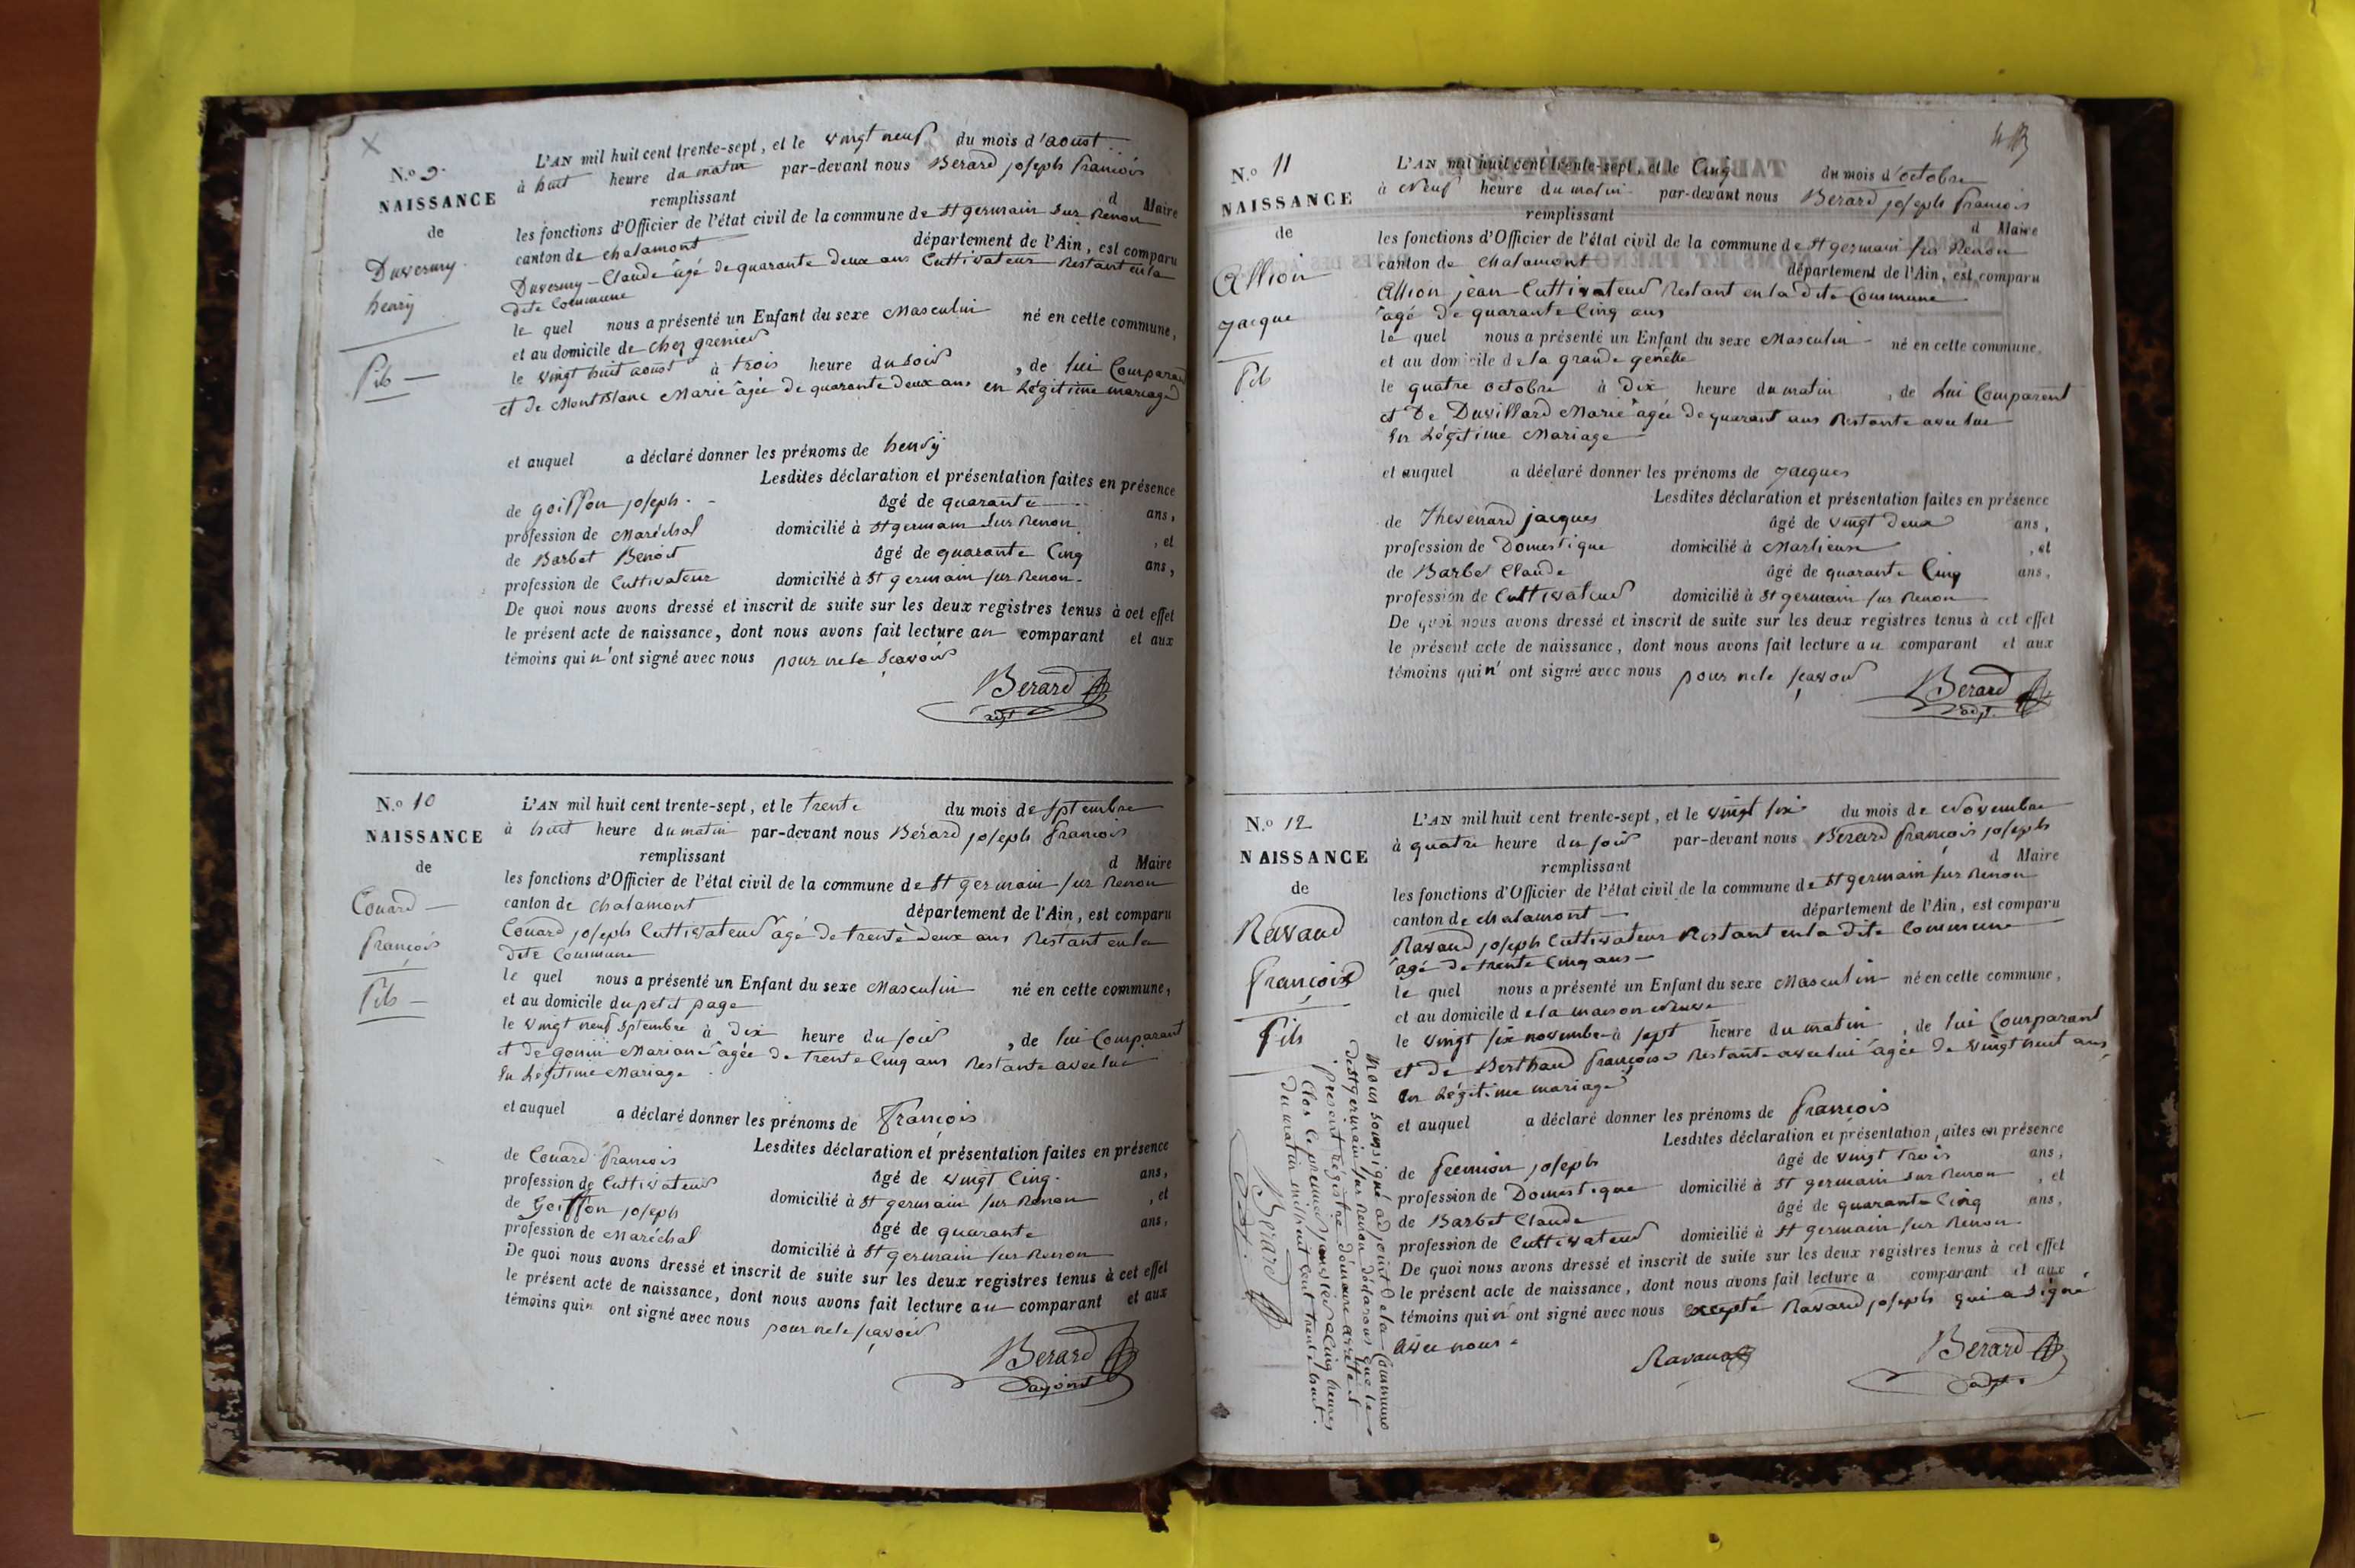 N.o 9.
NAISSANCE
de
Duverny
henry
Fils
L'AN mil huit cent trente-sept, et le vingt neuf du mois d'aoust
à huit heure du matin par-devant nous Berard joseph francois
remplissant d Maire
les fonctions d'Officier de l'état civil de la commune de St germain Sur Renon
canton de chalamont département de l'Ain, est comparu
Duverny Claude âgé de quarante deux ans Cultivateur Restant en la
dite Commune
le quel nous a présenté un Enfant du sexe Masculin né en cette commune,
et au domicile de chez grenier
le vingt huit aoust à trois heure du soir, de lui Comparant
et de MontBlanc Marie âgée de quarante deux ans en Légitime mariage
et auquel a déclaré donner les prénoms de henry
Lesdites déclaration et présentation faites en présence
de goiffon joseph âgé de quarante ans,
profession de Maréchal domicilié à St germain Sur Renon, et
de Barbet Benoit âgé de quarante Cinq ans,
profession de Cultivateur domicilié à St germain sur Renon
De quoi nous avons dressé et inscrit de suite sur les deux registres tenus à cet effet
le présent acte de naissance, dont nous avons fait lecture au comparant et aux
témoins qui n'ont signé avec nous pour ne le Scavoir
Berard
adjt
N.o 10
NAISSANCE
de
Couard
françois
Fils
L'AN mil huit cent trente-sept, et le trente du mois de Septembre
à huit heure du matin par-devant nous Bérard joseph francois
remplissant d Maire
les fonctions d'Officier de l'état civil de la commune de St germain sur Renon
canton de chalamont département de l'Ain, est comparu
Couard joseph Cultivateur âgé de trente deux ans Restant en la
dite Commune
le quel nous a présenté un Enfant du sexe Masculin né en cette commune,
et au domicile du petit page
le vingt neuf Septembre à dix heure du soir, de lui Comparant
et de gonin Mariane âgée de trente Cinq ans Restante avec lui
En Légitime Mariage
et auquel a déclaré donner les prénoms de François
Lesdites déclaration et présentation faites en présence
de Couard francois âgé de vingt Cinq ans,
profession de Cultivateur domicilié à St germain sur Renon, et
de Goiffon joseph âgé de quarante ans,
profession de Maréchal domicilié à St germain sur Renon
De quoi nous avons dressé et inscrit de suite sur les deux registres tenus à cet effet
le présent acte de naissance, dont nous avons fait lecture au comparant et aux
témoins qui n' ont signé avec nous pour ne le sçavoir
Berard
adjoint
N.o 11
NAISSANCE
de
Allion
Jacque
Fils
L'AN mil huit cent trente-sept, et le Cinq du mois d'octobre
à Neuf heure du matin par-devant nous Bérard joseph francois
remplissant d Maire
les fonctions d'Officier de l'état civil de la commune de St germain sur Renon
canton de Chalamont département de l'Ain, est comparu
Allion jean Cultivateur Restant en la dite Commune
âgé de quarante Cinq ans
le quel nous a présenté un Enfant du sexe Masculin né en cette commune,
et au domicile de la grande genelle
le quatre octobre à dix heure du matin, de Lui Comparent
et De Duvillard Marie âgée de quarant ans Restante avec lui
En Légitime Mariage
et auquel a déclaré donner les prénoms de Jacques
Lesdites déclaration et présentation faites en présence
de Thevenard jacques âgé de vingt deux ans,
profession de Domestique domicilié à Marlieux, et
de Barbet Claude âgé de quarante Cinq ans,
profession de Cultivateur domicilié à St germain sur Renon
De quoi nous avons dressé et inscrit de suite sur les deux registres tenus à cet effet
le présent acte de naissance, dont nous avons fait lecture au comparant et aux
témoins qui n' ont signé avec nous pour ne le sçavoir
Berard
adjt.
N.o 12
NAISSANCE
de
Ravaud
François
Fils
L'AN mil huit cent trente-sept, et le vingt six du mois de Novembre
à quatre heure du soir par-devant nous Bérard françois joseph
remplissant d Maire
les fonctions d'Officier de l'état civil de la commune de St germain sur Renon
canton de chalamont département de l'Ain, est comparu
Ravaud joseph Cultivateur Restant en la dite Commune
âgé de trente Cinq ans
le quel nous a présenté un Enfant du sexe Masculin né en cette commune,
et au domicile de la maison neuve
le vingt six novembre à sept heure du matin, de lui Comparant
et de Berthaud françoise Restante avec lui âgée de vingt huit ans
En Légitime mariage
et auquel a déclaré donner les prénoms de François
Lesdites déclaration et présentation faites en présence
de joseph âgé de vingt trois ans,
profession de Domestique domicilié à St germain sur Renon, et
de Barbet Claude âgé de quarante Cinq ans,
profession de Cultivateur domicilié à St germain sur Renon
De quoi nous avons dressé et inscrit de suite sur les deux registres tenus à cet effet
le présent acte de naissance, dont nous avons fait lecture a comparant et aux
témoins qui n' ont signé avec nous excepté Ravaud joseph qui a signé
avec nous
Ravaud
Berard
adjt.
Nous Soussigné adjoint de la Commune
de St germain sur Renon déclarons que le
présent registre demeure arrêté et
Clos le premier janvier a Cinq heures
du matin mil huit cent trente huit.
Berard
adjt.